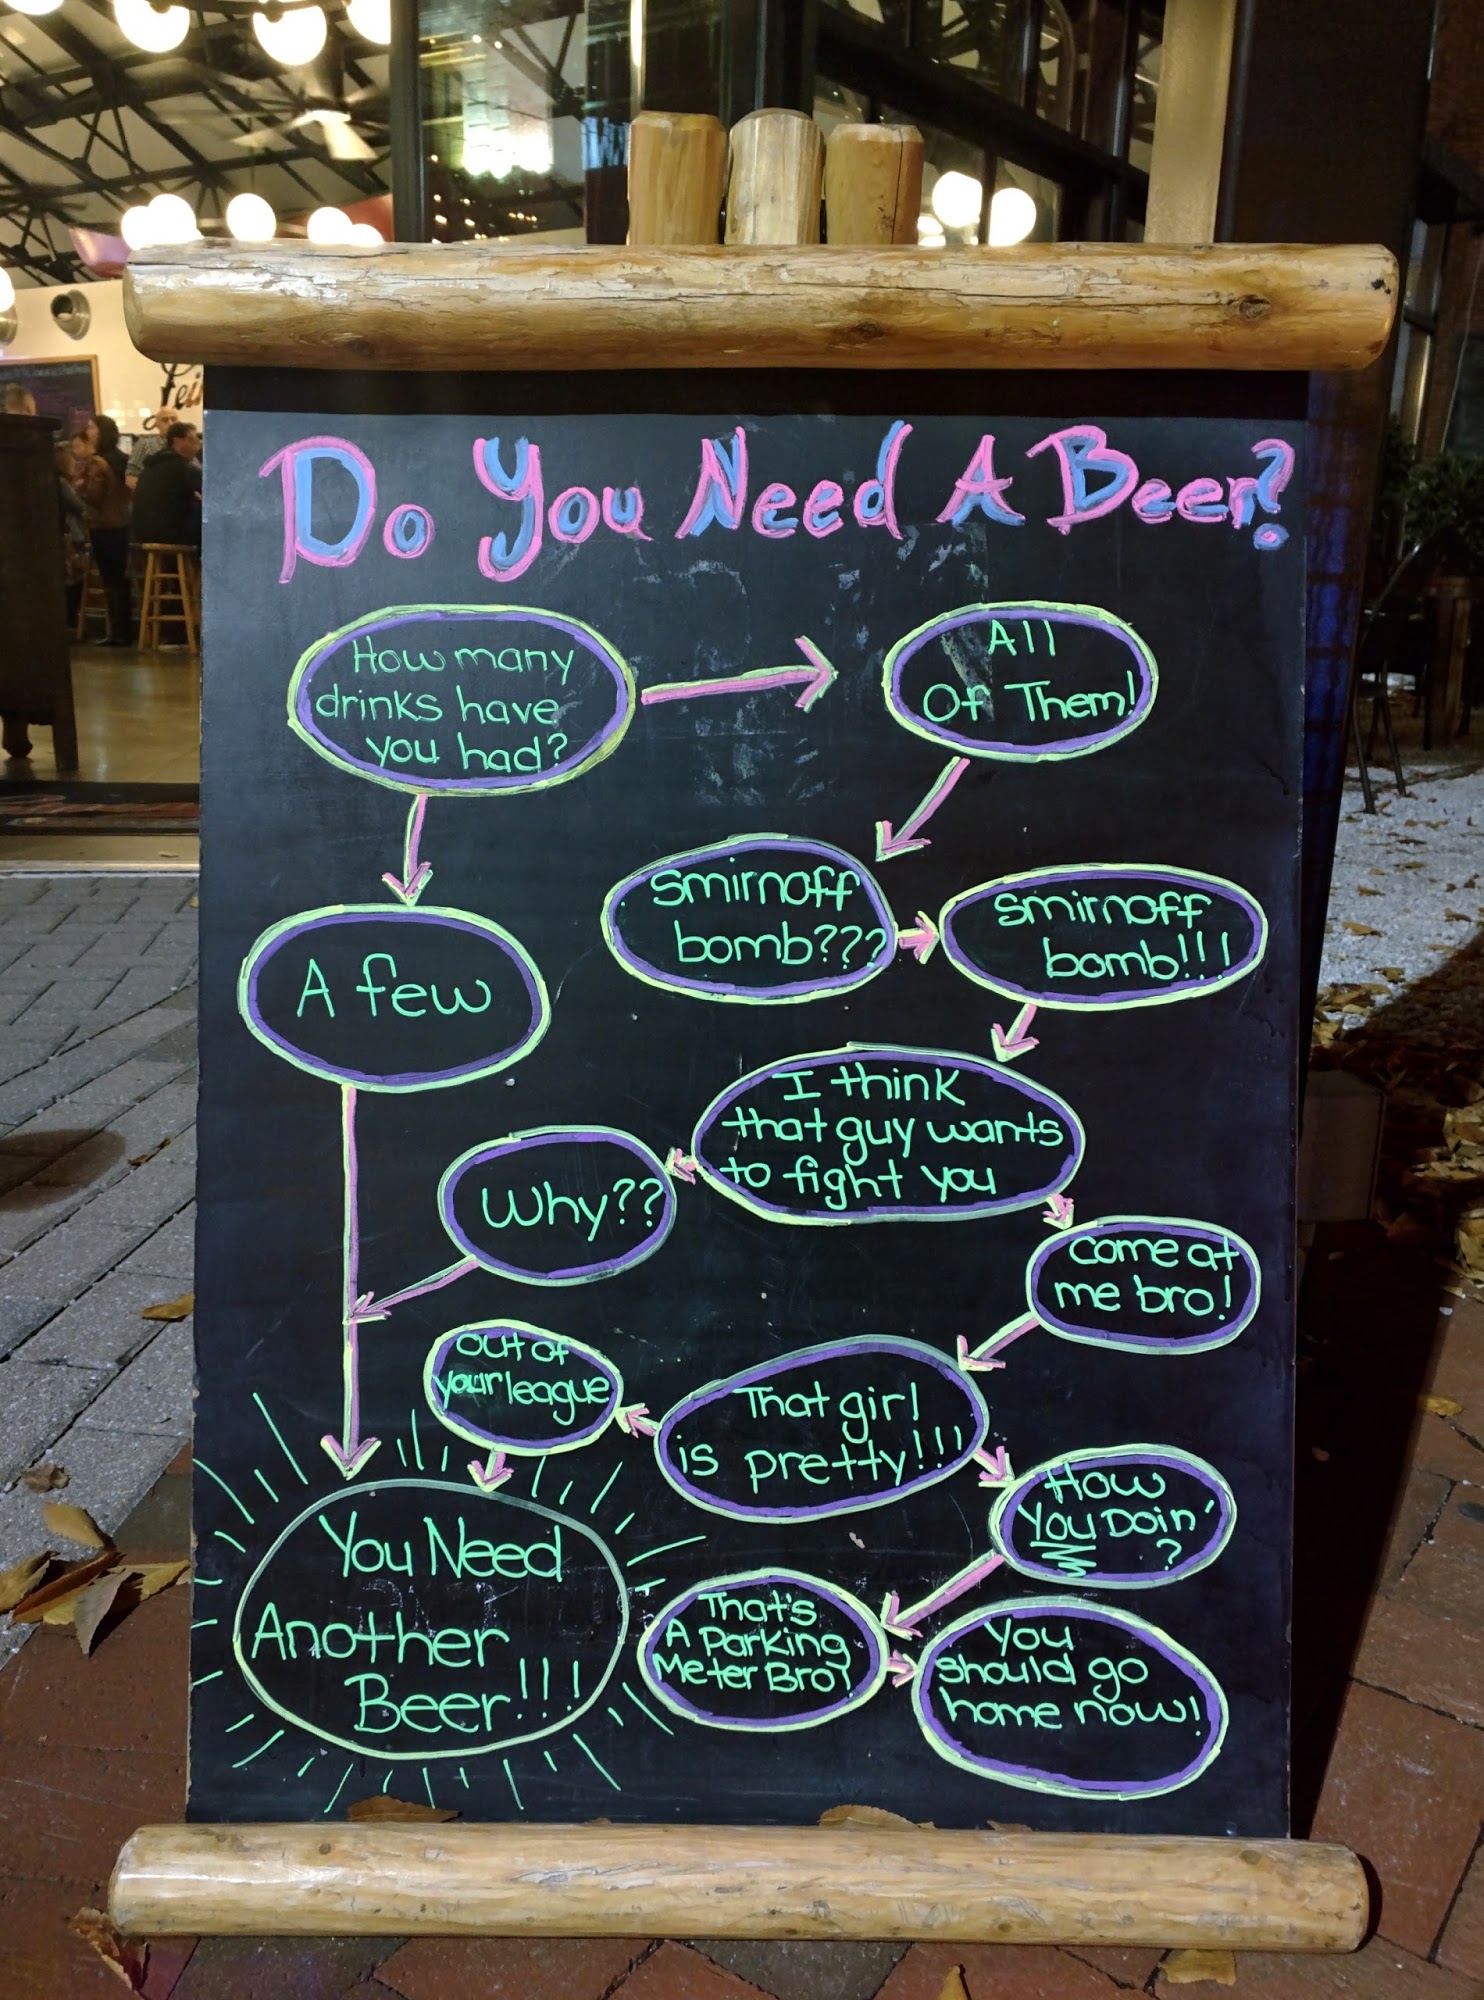 Do You Need A Beer?
How many
drinks have
you had?
All
Of Them!
Smirnoff
bomb???
Smirnoff
bomb!!!
A few
I think
that guy wants
to fight you
Why??
Come at
me bro!
Out of
your league
That girl
is pretty!!!
How
You Doin'
?
You Need
Another
Beer!!!
That's
A Parking
Meter Bro!
You
should go
home now!